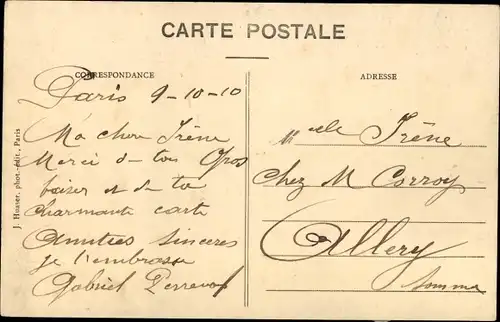 CARTE POSTALE
CORRESPONDANCE
ADRESSE
J. Hauser, phot.-édit., Paris
Paris 9-10-10
Ma chere Irène
Merci de ton Gros
baiser et de ta
charmante carte
Amitiés sinceres
je t'embrasse
Gabriel
Melle Irène
chez M Corroy
Allery
Somme